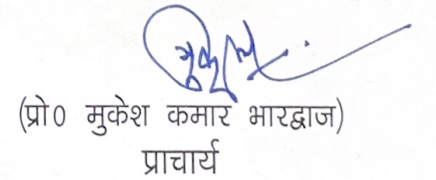 (प्रो० मुकेश कमार भारद्वाज)
प्राचार्य